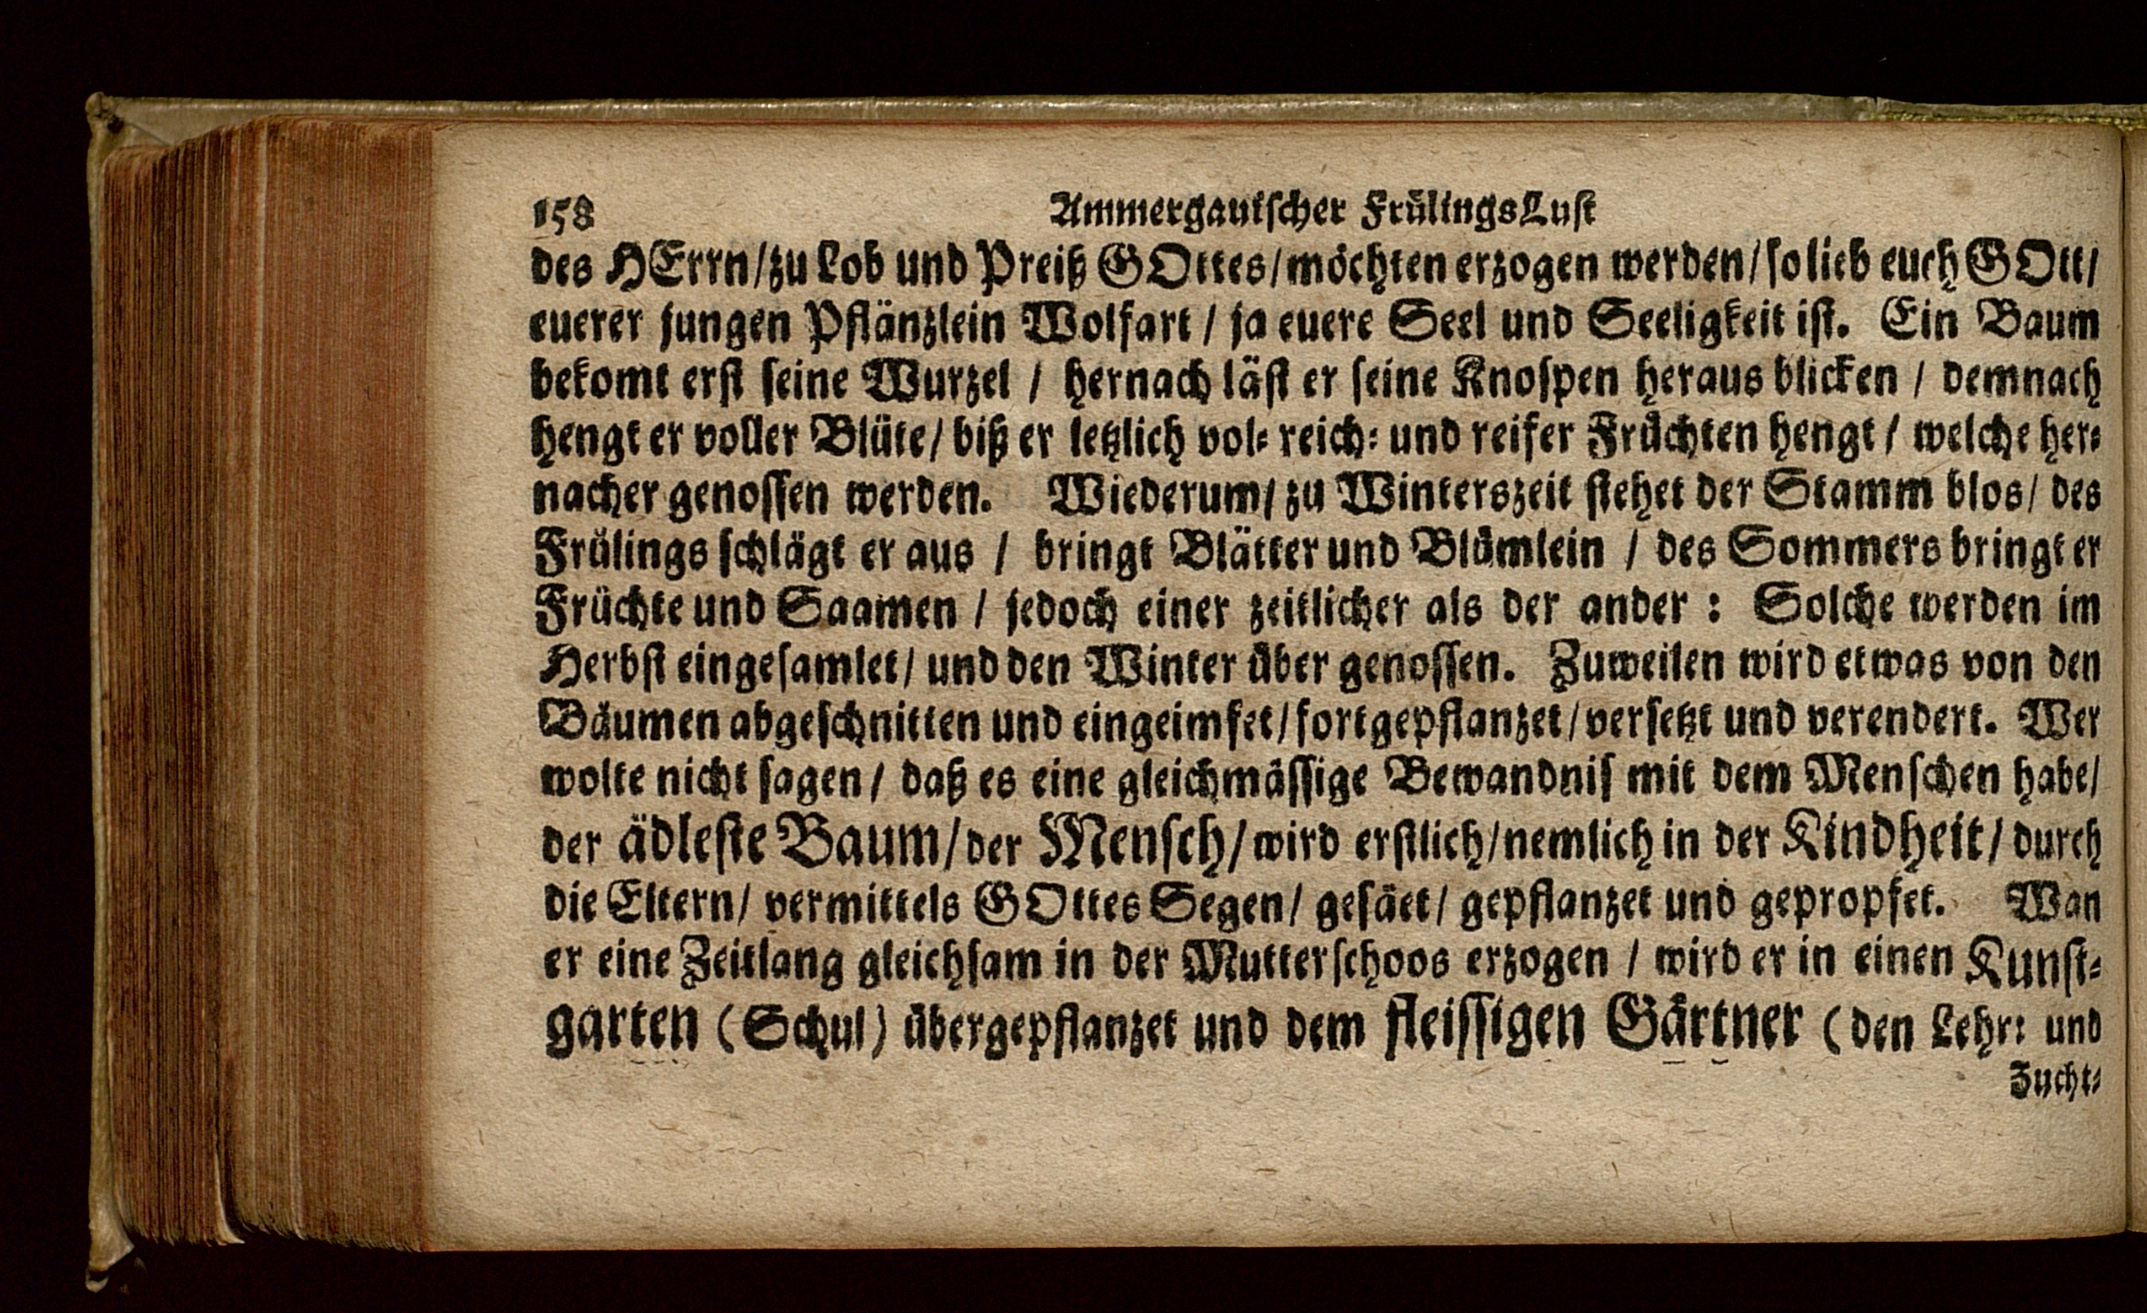 158 Ammergauiſcher FrülingsLuſt
des HErrn/zu Lob und Preiß GOttes/möchten erzogen werden/ſo lieb euch GOtt/
euerer jungen Pflänzlein Wolfart / ja euere Seel und Seeligkeit iſt. Ein Baum
bekomt erſt ſeine Wurzel / hernach läſt er ſeine Knoſpen heraus blicken / demnach
hengt er voller Blüte/ biß er letzlich vol⸗ reich⸗ und reifer Früchten hengt / welche her⸗
nacher genoſſen werden. Wiederum/ zu Winterszeit ſtehet der Stamm blos/ des
Frülings ſchlägt er aus / bringt Blätter und Blümlein / des Sommers bringt er
Früchte und Saamen / jedoch einer zeitlicher als der ander : Solche werden im
Herbſt eingeſamlet/ und den Winter über genoſſen. Zuweilen wird etwas von den
Bäumen abgeſchnitten und eingeimfet/fortgepflanzet/verſetzt und verendert. Wer
wolte nicht ſagen/ daß es eine gleichmäſſige Bewandniſ mit dem Menſchen habe/
der ädleſte Baum/der Menſch/wird erſtlich/nemlich in der Kindheit/durch
die Eltern/ vermittels GOttes Segen/ geſäet/ gepflanzet und gepropfet. Wan
er eine Zeitlang gleichſam in der Mutterſchoos erzogen / wird er in einen Kunſt⸗
garten (Schul) übergepflanzet und dem fleiſſigen Gärtner (den Lehr⸗ und
Zucht⸗